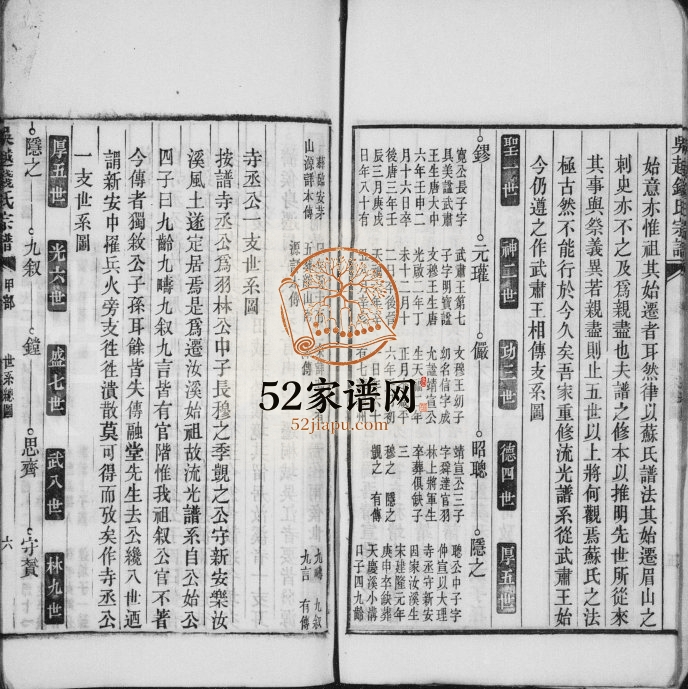 吳越錢氏宗譜
始意亦惟祖其始遷者耳然律以蘇氏譜法其始遷眉山之
刺史亦不之及為親盡也夫譜之修本以推明先世所從來
其事與祭義異若親盡則止五世以上將何觀焉蘇氏之法
極古然不能行於今久矣吾家重修流光譜系從武肅王始
今仍遵之作武肅王相傳支系圖
聖一世
神二世
功三世
德四世
厚五世
鏐
元瓘
儼
昭聰
隱之
寬公長子字
具美諡武肅
王生唐大中
六年壬申二
月十六日卒
後唐三年壬
辰三月庚戌
日年八十有
武肅王第七
子字明寶諡
文穆王生唐
光啟三年丁
未十一月十
文穆王幼子
幼名信字成
允諡靖宣公
生天
正月
靖宣公三子
字舜達官羽
林上將軍生
三
卒葬俱缺子
三
穆之 隱之
覬之 有傳
聰公中子字
仲宣以大理
寺丞守新安
因家汝溪生
宋建隆元年
庚申卒缺葬
天慶溪小溝
口子四九齡
九疇 九叙
九言 有傳
寺丞公一支世系圖
按譜寺丞公為羽林公中子長穆之季覬之公守新安樂汝
溪風土遂定居焉是為遷汝溪始祖故流光譜系自公始公
四子曰九齡九疇九叙九言皆有官階惟我祖叙公官不著
今傳者獨敘公子孫耳餘皆失傳融堂先生去公纔八世迺
謂新安中罹兵火旁支徃徃潰散莫可得而攷矣作寺丞公
一支世系圖
厚五世
光六世
盛七世
武八世
林九世
隱之
九叙
鐘
思齊
守贇
吳越錢氏宗譜
甲部
世系總圖
六
52家谱网
52jiapu.com